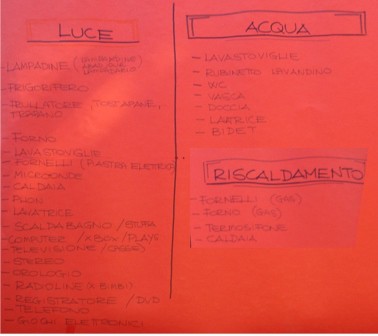 LUCE
- LAMPADINE (COMODINO
LAMPADARIO
- FRIGORIFERO
- FRULLATORE, TOSTAPANE,
- FORNO
- LAVASTOVIGLIE
- FORNELLI (PIASTRA ELETTRICA)
- MICROONDE
- CALDAIA
- PHON
- LAVATRICE
- SCALDABAGNO / STUFA
- COMPUTER / X BOX / PLAY S
- TELEVISIONE /
- STEREO
- OROLOGIO
- RADIOLINE (X BIMBI)
- REGISTRATORE / DVD
- TELEFONO
- GIOCHI ELETTRONICI
ACQUA
- LAVASTOVIGLIE
- RUBINETO LAVANDINO
- WC
- VASCA
- DOCCIA
- BIDET
RISCALDAMENTO
- FORNELLI (GAS)
- FORNO (GAS)
- TERMOSIFONE
- CALDAIA